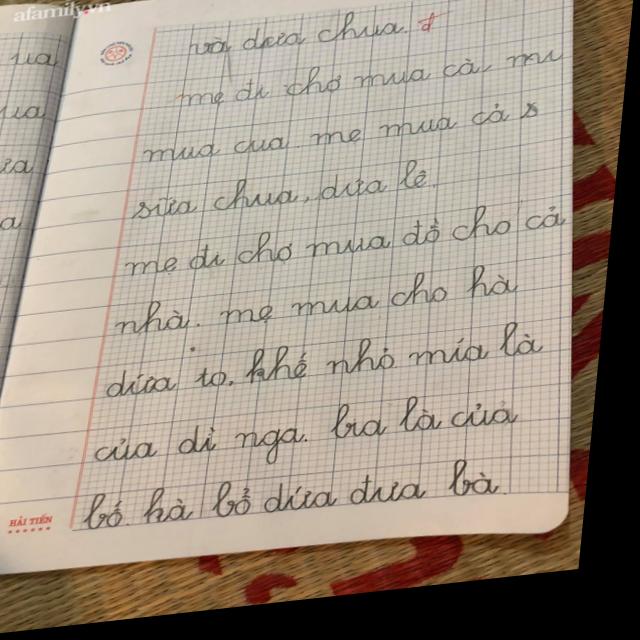 afamily.vn
ua
ua
ưa
a
và dưa chua.
mẹ đi chợ mua cà. mu
mua cua. mẹ mua cả s
sữa chua, dưa lê.
mẹ đi chợ mua đồ cho cả
nhà. mẹ mua cho hà
dứa to, khế nhỏ mía là
của dì nga. bia là của
bố. hà bổ dứa đưa bà.
HẢI TIẾN